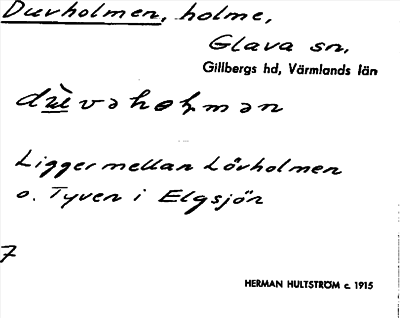 Duvholmen, holme,
Glava sn.
Gillbergs hd, Värmlands län
Ligger mellan Lövholmen
o. Tyven i Elgsjön
7
HERMAN HULTSTRÖM c. 1915